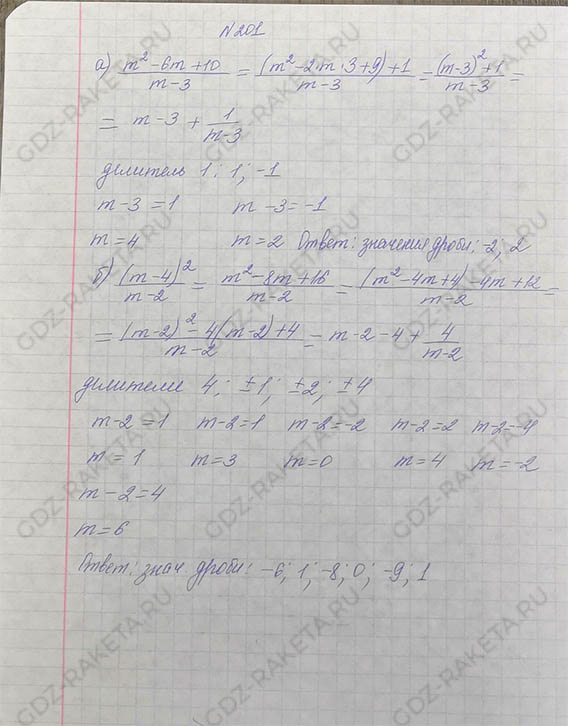 N201
а) (m² - 6m + 10)/(m-3) = ((m² - 2·m·3 + 9) + 1)/(m-3) = ((m-3)² + 1)/(m-3) =
= m-3 + 1/(m-3)
делитель 1: 1; -1
m-3 = 1 m-3 = -1
m = 4 m = 2 Ответ: значения дроби: -2; 2
б) (m-4)²/(m-2) = (m² - 8m + 16)/(m-2) = ((m² - 4m + 4) - 4m + 12)/(m-2) =
= ((m-2)² - 4(m-2) + 4)/(m-2) = m-2-4 + 4/(m-2)
делители 4: ±1; ±2; ±4
m-2 = 1 m-2 = 1 m-2 = -2 m-2 = 2 m-2 = -4
m = 1 m = 3 m = 0 m = 4 m = -2
m-2 = 4
m = 6
Ответ: знач. дроби: -6; 1; -8; 0; -9; 1
GDZ-RAKETA.RU